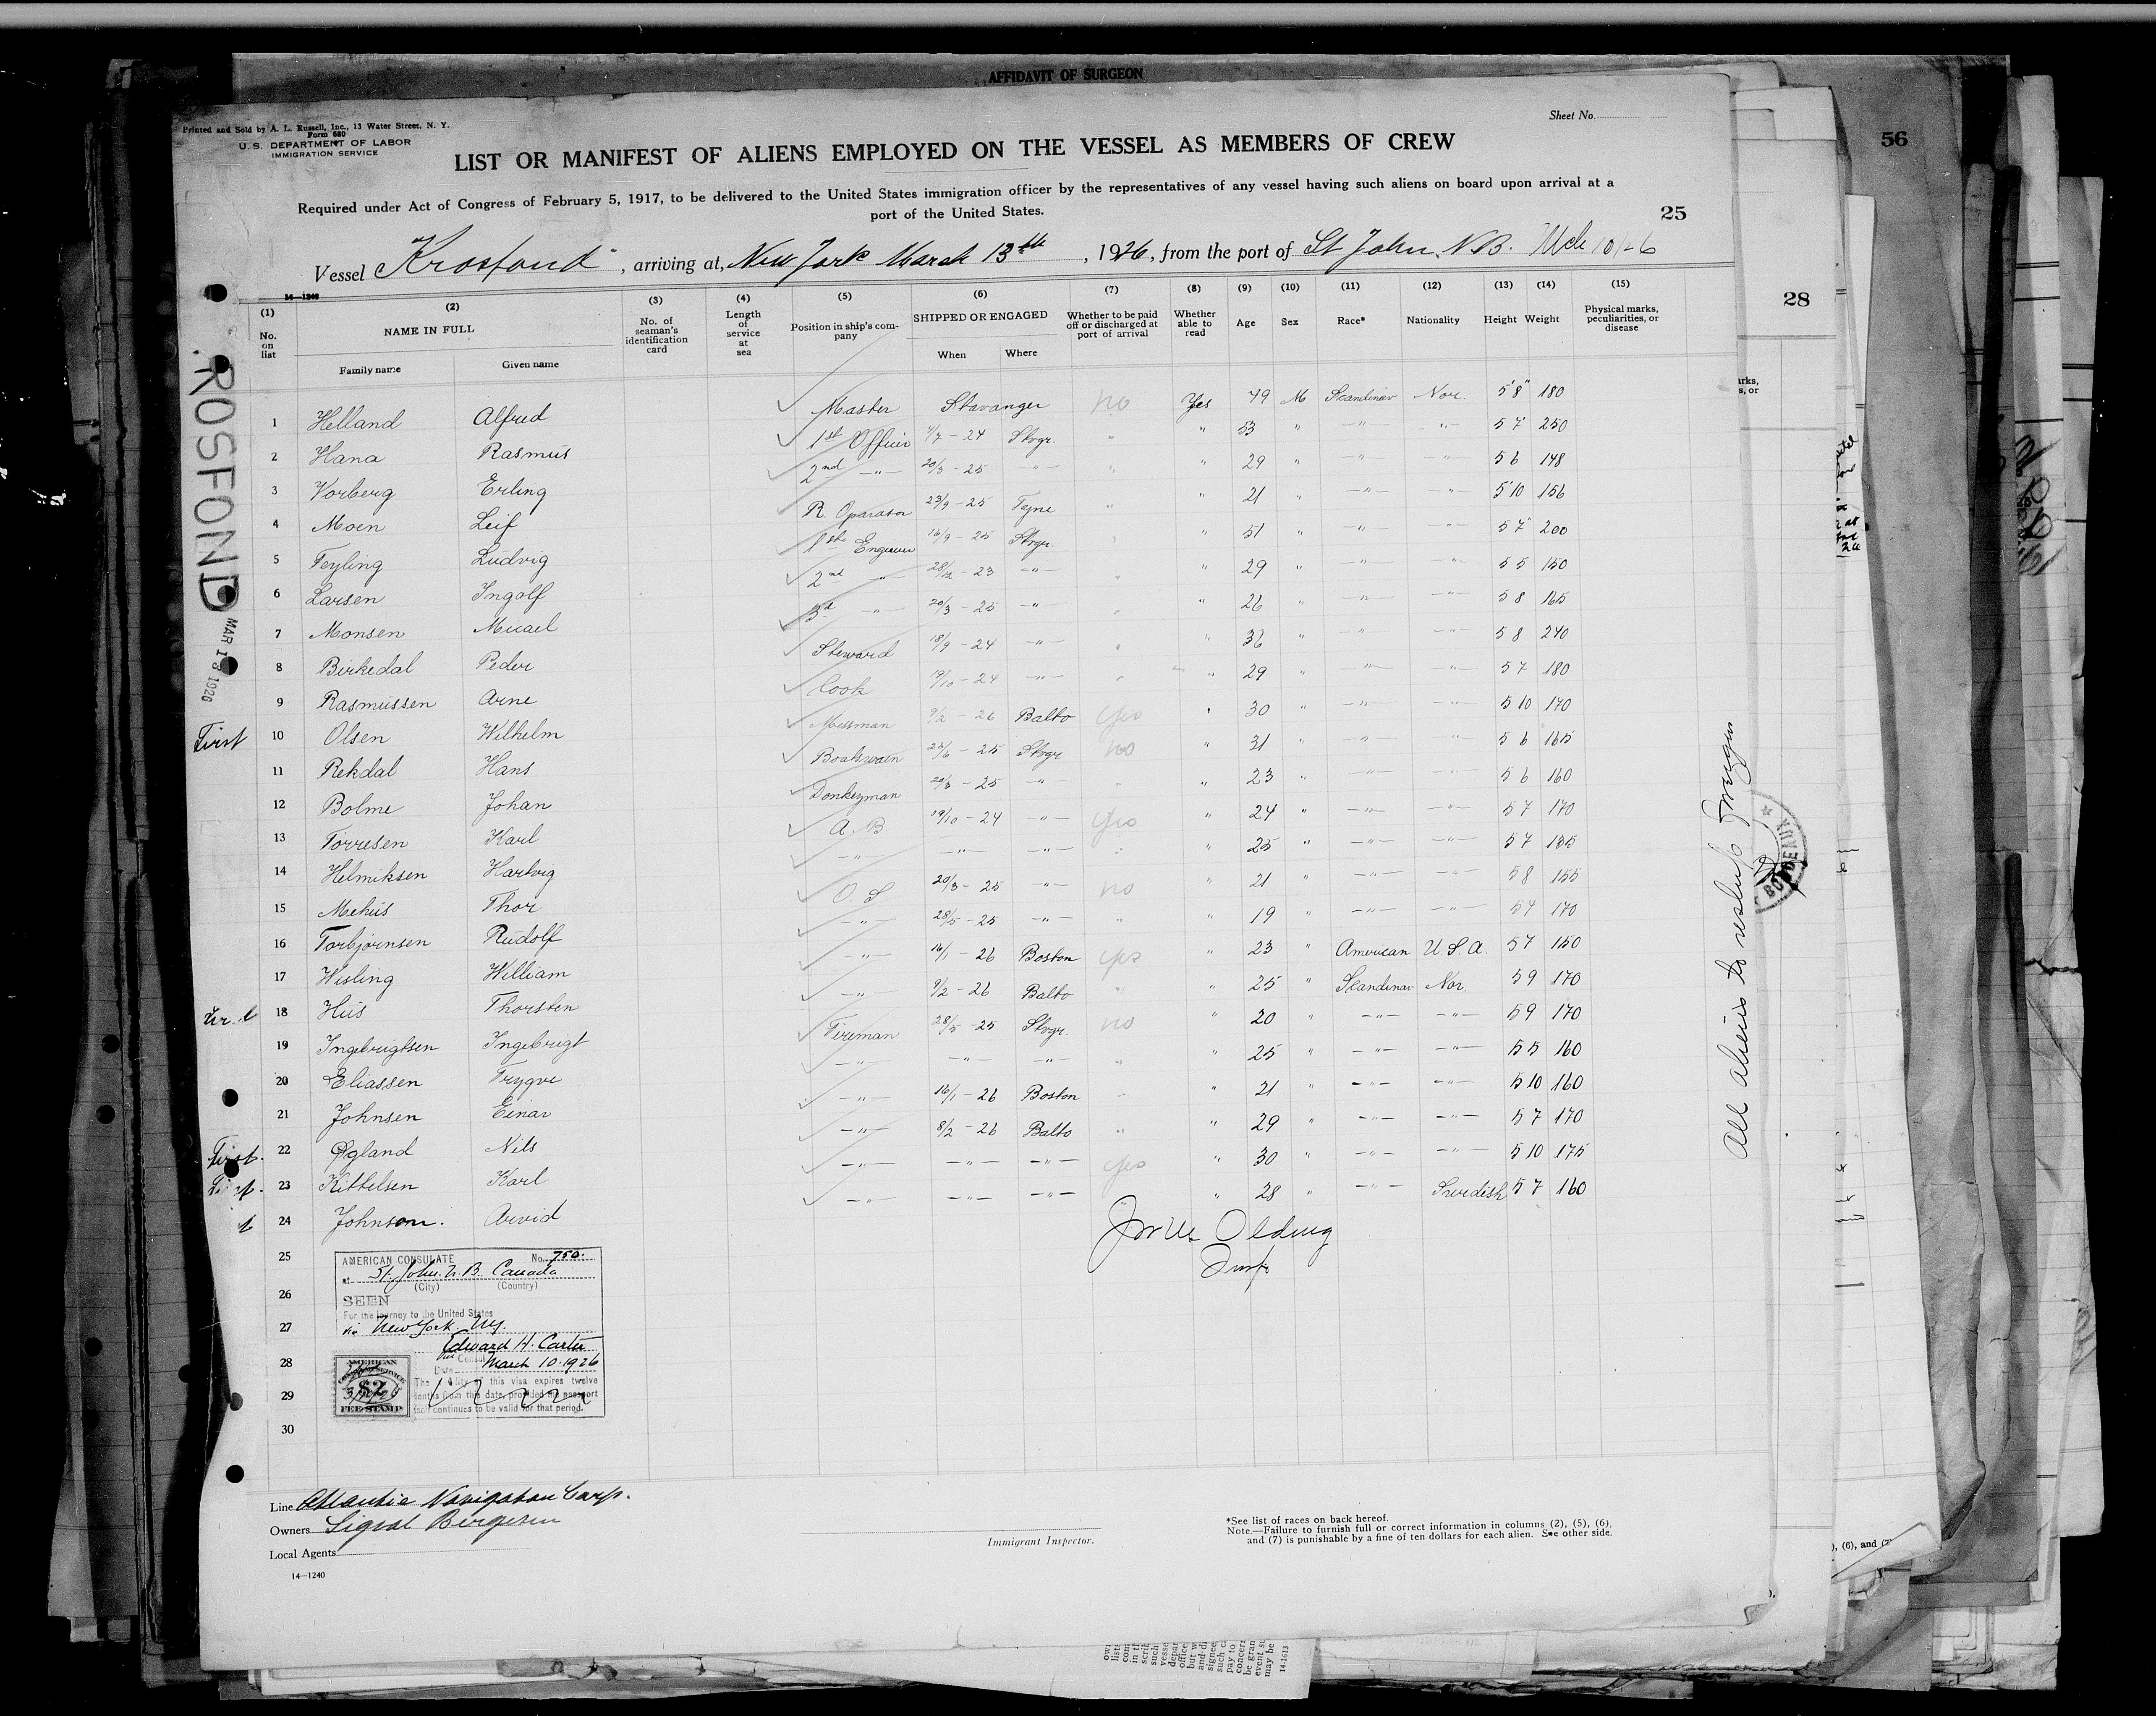 AFFIDAVIT OF SURGEON
56
Printed and Sold by A. L. Russell, Inc., 13 Water Street, N. Y.
Form 680
U. S. DEPARTMENT OF LABOR
IMMIGRATION SERVICE
Sheet No.
LIST OR MANIFEST OF ALIENS EMPLOYED ON THE VESSEL AS MEMBERS OF CREW
Required under Act of Congress of February 5, 1917, to be delivered to the United States immigration officer by the representatives of any vessel having such aliens on board upon arrival at a
port of the United States.
25
Vessel Krosfond, arriving at, New York March 13th, 1926, from the port of St John, N.B. Mch 10/26
14—1240
28
(1) No. on list (2) NAME IN FULL Family name Given name (3) No. of seaman's identification card (4) Length of service at sea (5) Position in ship's company (6) SHIPPED OR ENGAGED When Where (7) Whether to be paid off or discharged at port of arrival (8) Whether able to read (9) Age (10) Sex (11) Race* (12) Nationality (13) Height (14) Weight (15) Physical marks, peculiarities, or disease
1 Helland Alfred Master Stavanger no Yes 49 M Scandinav Nor. 5'8" 180
2 Hana Rasmus 1st Officer 4/7-24 Stvgr. " " 53 " -"- -"- 5 7 250
3 Vorberg Erling 2nd -"- 20/3-25 -"- " " 29 " -"- -"- 5 6 148
4 Moen Leif R. Oparator 23/9-25 Tyne " " 21 " -"- -"- 5'10 156
5 Feyling Ludvig 1st Engineer 15/9-25 Stvgr. " " 51 " -"- -"- 5 7 200
6 Larsen Ingolf 2nd -"- 28/12-23 -"- " " 29 " -"- -"- 5 5 150
7 Monsen Micael 3d -"- 20/3-25 -"- " " 26 " -"- -"- 5 8 165
8 Birkedal Peder Steward 18/9-24 -"- " " 36 " -"- -"- 5 8 240
9 Rasmussen Arne Cook 19/10-24 -"- " " 29 " -"- -"- 5 7 180
First 10 Olsen Wilhelm Messman 9/2-26 Balto yes " 30 " -"- -"- 5 10 170
11 Rekdal Hans Boatswain 23/6-25 Stvgr no " 31 " -"- -"- 5 6 165
12 Bolme Johan Donkeyman 20/3-25 -"- " " 23 " -"- -"- 5 6 160
13 Torresen Karl A.B 19/10-24 -"- yes " 24 " -"- -"- 5 7 170
14 Helmiksen Hartvig -"- -"- -"- " " 25 " -"- -"- 5 7 135
15 Mehus Thor O.S 20/3-25 -"- no " 21 " -"- -"- 5 8 155
16 Torbjørnsen Rudolf -"- 28/5-25 -"- " " 19 " -"- -"- 5 7 170
17 Wisling William -"- 16/1-26 Boston yes " 23 " American U.S.A. 5 7 150
18 Hus Thorsten -"- 9/2-26 Balto " " 25 " Scandinav Nor. 5 9 170
19 Ingebrigtsen Ingebrigt Fireman 28/5-25 Stvgr. no " 20 " -"- -"- 5 9 170
20 Eliassen Trygve -"- -"- -"- " " 25 " -"- -"- 5 5 160
21 Johnsen Einar -"- 16/1-26 Boston " " 21 " -"- -"- 5 10 160
First. 22 Øgland Nils -"- 8/2-26 Balto " " 29 " -"- -"- 5 7 170
First. 23 Kittelsen Karl -"- -"- -"- yes " 30 " -"- -"- 5 10 175
24 Johnson. Arvid -"- -"- -"- " 28 " -"- Swedish 5 7 160
25
26
27
28
29
30
AMERICAN CONSULATE No. 750.
at St. John. N. B. Canada
(City) (Country)
SEEN
For the journey to the United States
via New York. Ny.
Edward H. Carter
Vice Consul
Date March 10. 1926
The validity of this visa expires twelve
months from this date, provided the passport
itself continues to be valid for that period.
AMERICAN
CONSULAR SERVICE
$2
FEE STAMP
KROSFOND
MAR 13 1926
All aliens to reship foreign
BORDEAUX
Line Atlantic Navigation Corp.
Owners Sigval Bergesen
Local Agents
14—1240
Immigrant Inspector.
*See list of races on back hereof.
Note.—Failure to furnish full or correct information in columns (2), (5), (6),
and (7) is punishable by a fine of ten dollars for each alien. See other side.
, (6), and (7)
14-1613